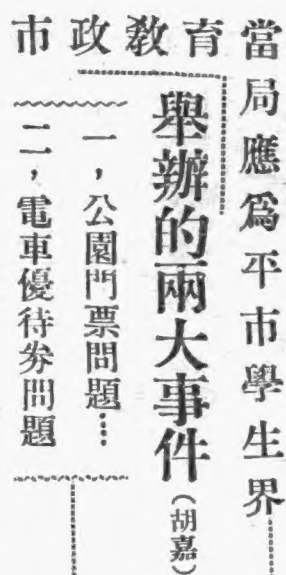 市政敎育當
局應爲平市學生界
舉辦的兩大事件（胡嘉）
一，公園門票問題…
二，電車優待劵問題